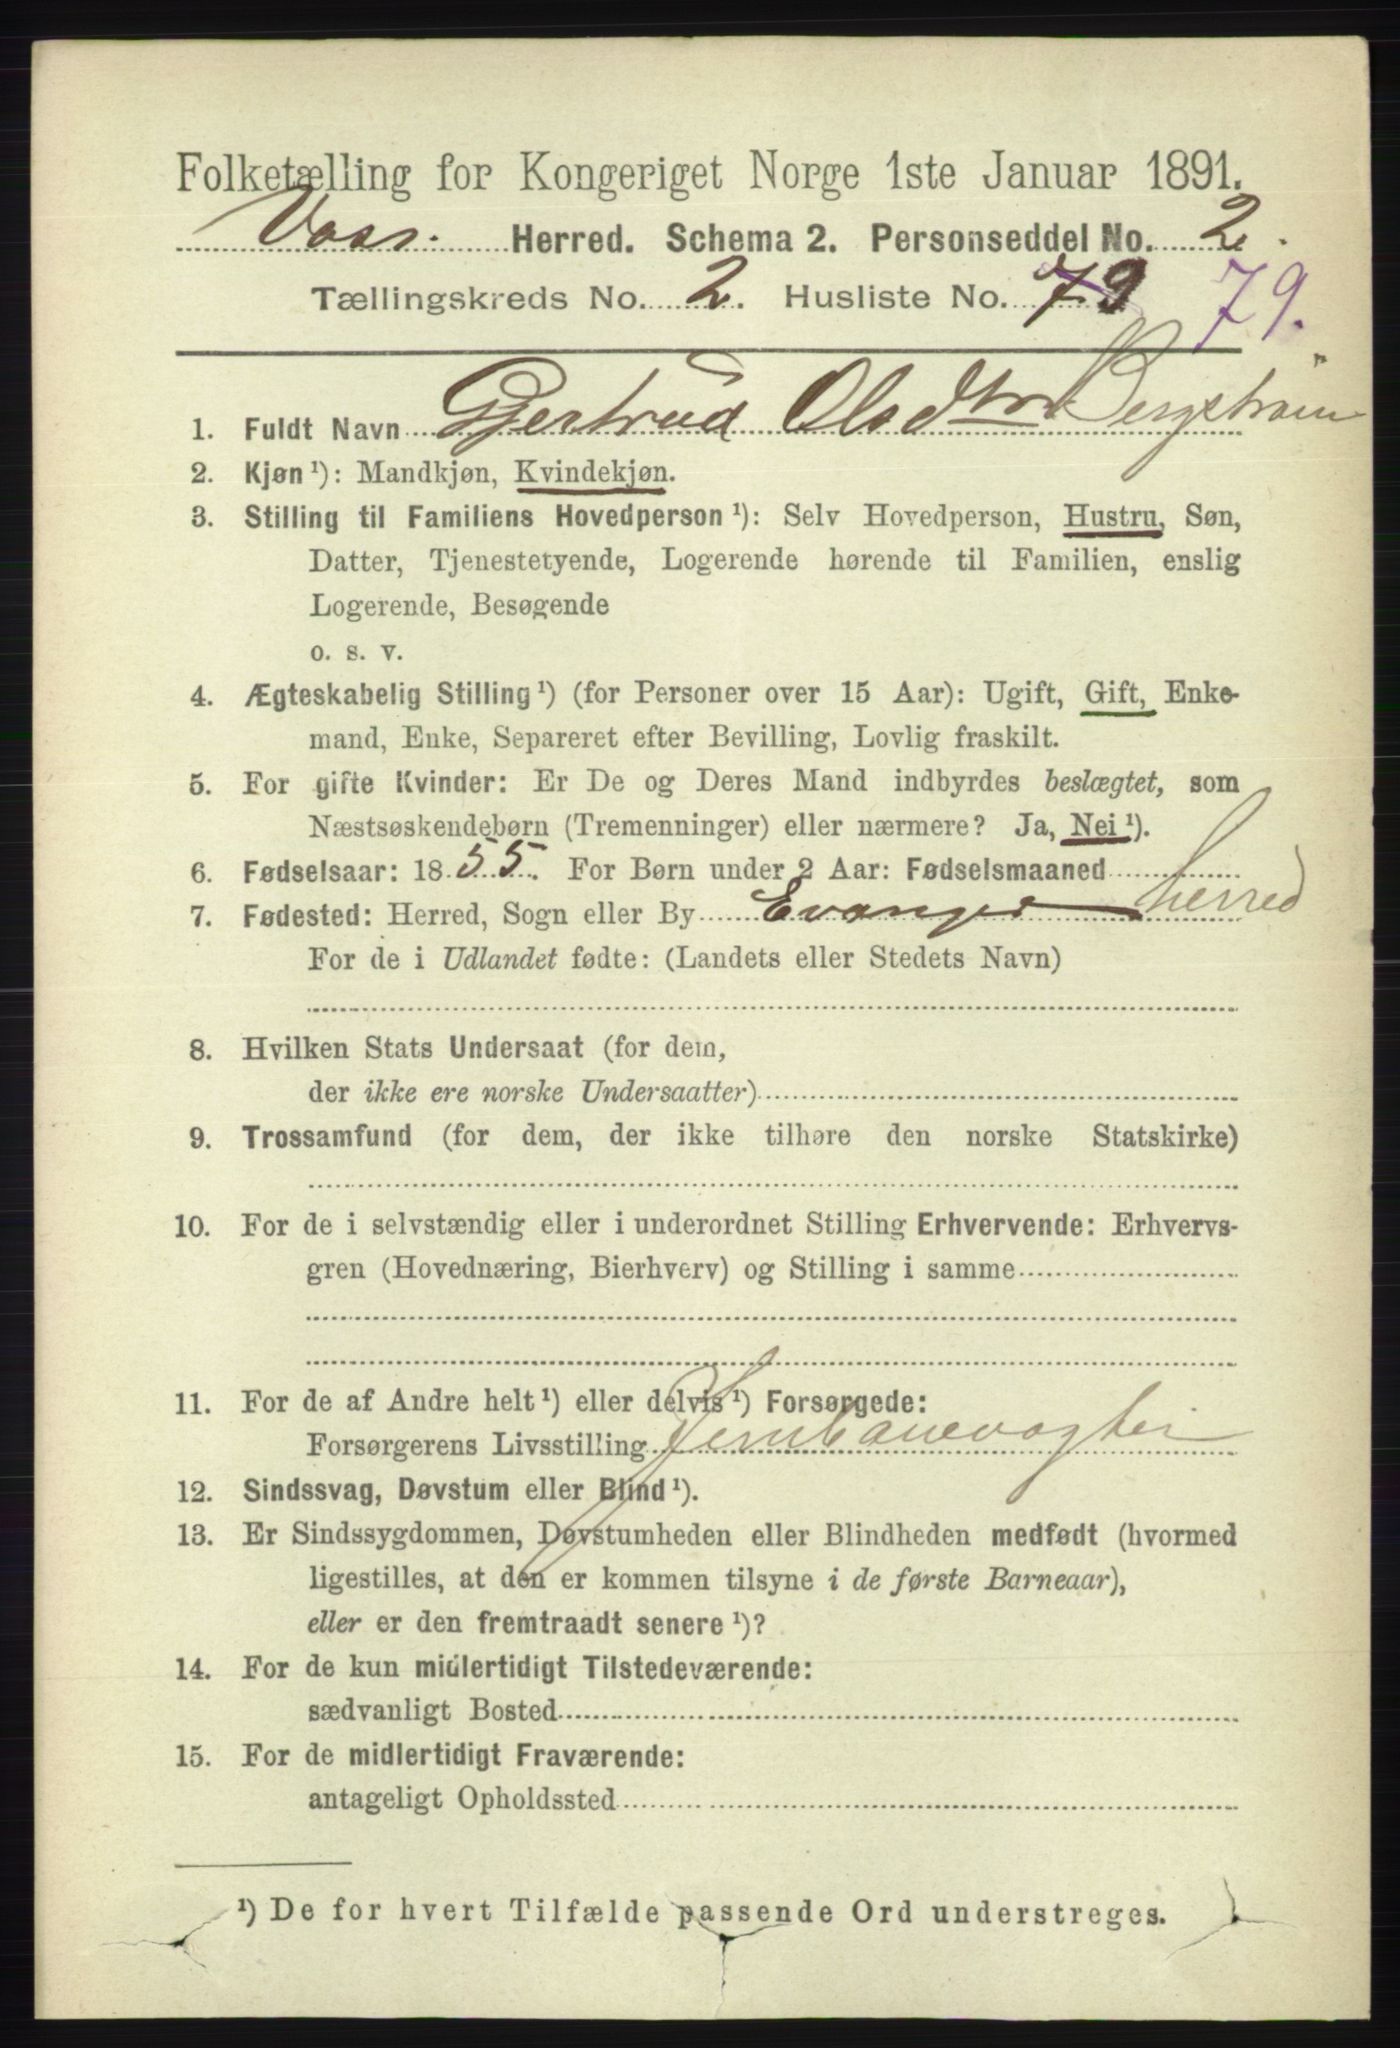 Folketælling for Kongeriget Norge 1ste Januar 1891.
Voss. Herred. Schema 2. Personseddel No. 2.
Tællingskreds No. 2. Husliste No. 79 79.
1. Fuldt Navn Gjertrud Olsdtr Bergström
2. Kjøn¹): Mandkjøn, Kvindekjøn.
3. Stilling til Familiens Hovedperson¹): Selv Hovedperson, Hustru, Søn,
Datter, Tjenestetyende, Logerende hørende til Familien, enslig
Logerende, Besøgende
o. s. v.
4. Ægteskabelig Stilling¹) (for Personer over 15 Aar): Ugift, Gift, Enke-
mand, Enke, Separeret efter Bevilling, Lovlig fraskilt.
5. For gifte Kvinder: Er De og Deres Mand indbyrdes beslægtet, som
Næstsøskendebørn (Tremenninger) eller nærmere? Ja, Nei¹).
6. Fødselsaar: 1855. For Børn under 2 Aar: Fødselsmaaned
7. Fødested: Herred, Sogn eller By Evanger herred
For de i Udlandet fødte: (Landets eller Stedets Navn)
8. Hvilken Stats Undersaat (for dem,
der ikke ere norske Undersaatter)
9. Trossamfund (for dem, der ikke tilhøre den norske Statskirke)
10. For de i selvstændig eller i underordnet Stilling Erhvervende: Erhvervs-
gren (Hovednæring, Bierhverv) og Stilling i samme
11. For de af Andre helt¹) eller delvis¹) Forsørgede:
Forsørgerens Livsstilling Jernbanevogter
12. Sindssvag, Døvstum eller Blind¹).
13. Er Sindssygdommen, Døvstumheden eller Blindheden medfødt (hvormed
ligestilles, at den er kommen tilsyne i de første Barneaar),
eller er den fremtraadt senere¹)?
14. For de kun midlertidigt Tilstedeværende:
sædvanligt Bosted
15. For de midlertidigt Fraværende:
antageligt Opholdssted
¹) De for hvert Tilfælde passende Ord understreges.